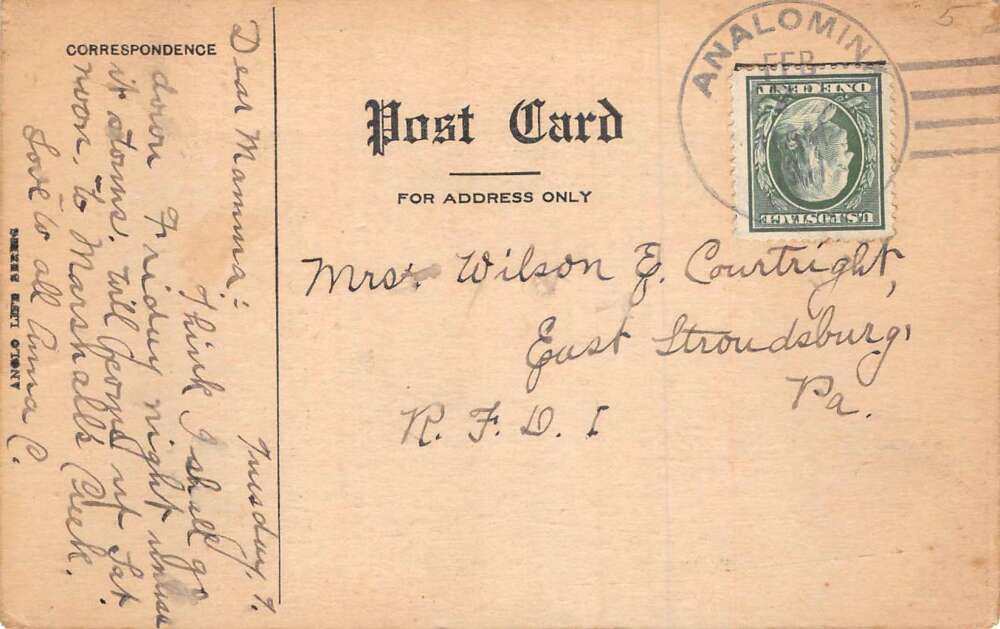 CORRESPONDENCE
Dear Mamma:-
Tuesday, 7.
Think I shall go
down Friday night unless
it storms. Will George up Sat
noon. to Marshall's Creek.
Love to all Anna C.
ANGLO LIFE SERIES
Post Card
FOR ADDRESS ONLY
ANALOMIN
FEB
ONE CENT
U.S. POSTAGE
5
Mrs. Wilson E. Courtright,
East Stroudsburg,
Pa.
R. F. D. 1